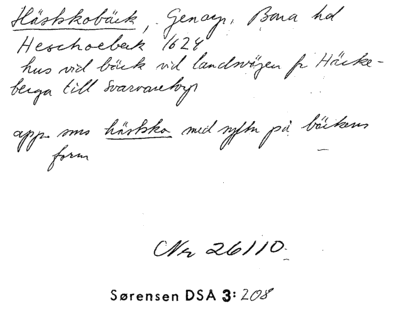 Hästskobäck, Genarp, Bara hd
Heschoebeck 1624
hus vid bäck vid landsvägen fr Häcke-
berga till Svarvaretorp
app. sms hästsko med syftn på bäckens
form
Nr 26110.
Sørensen DSA 3: 208